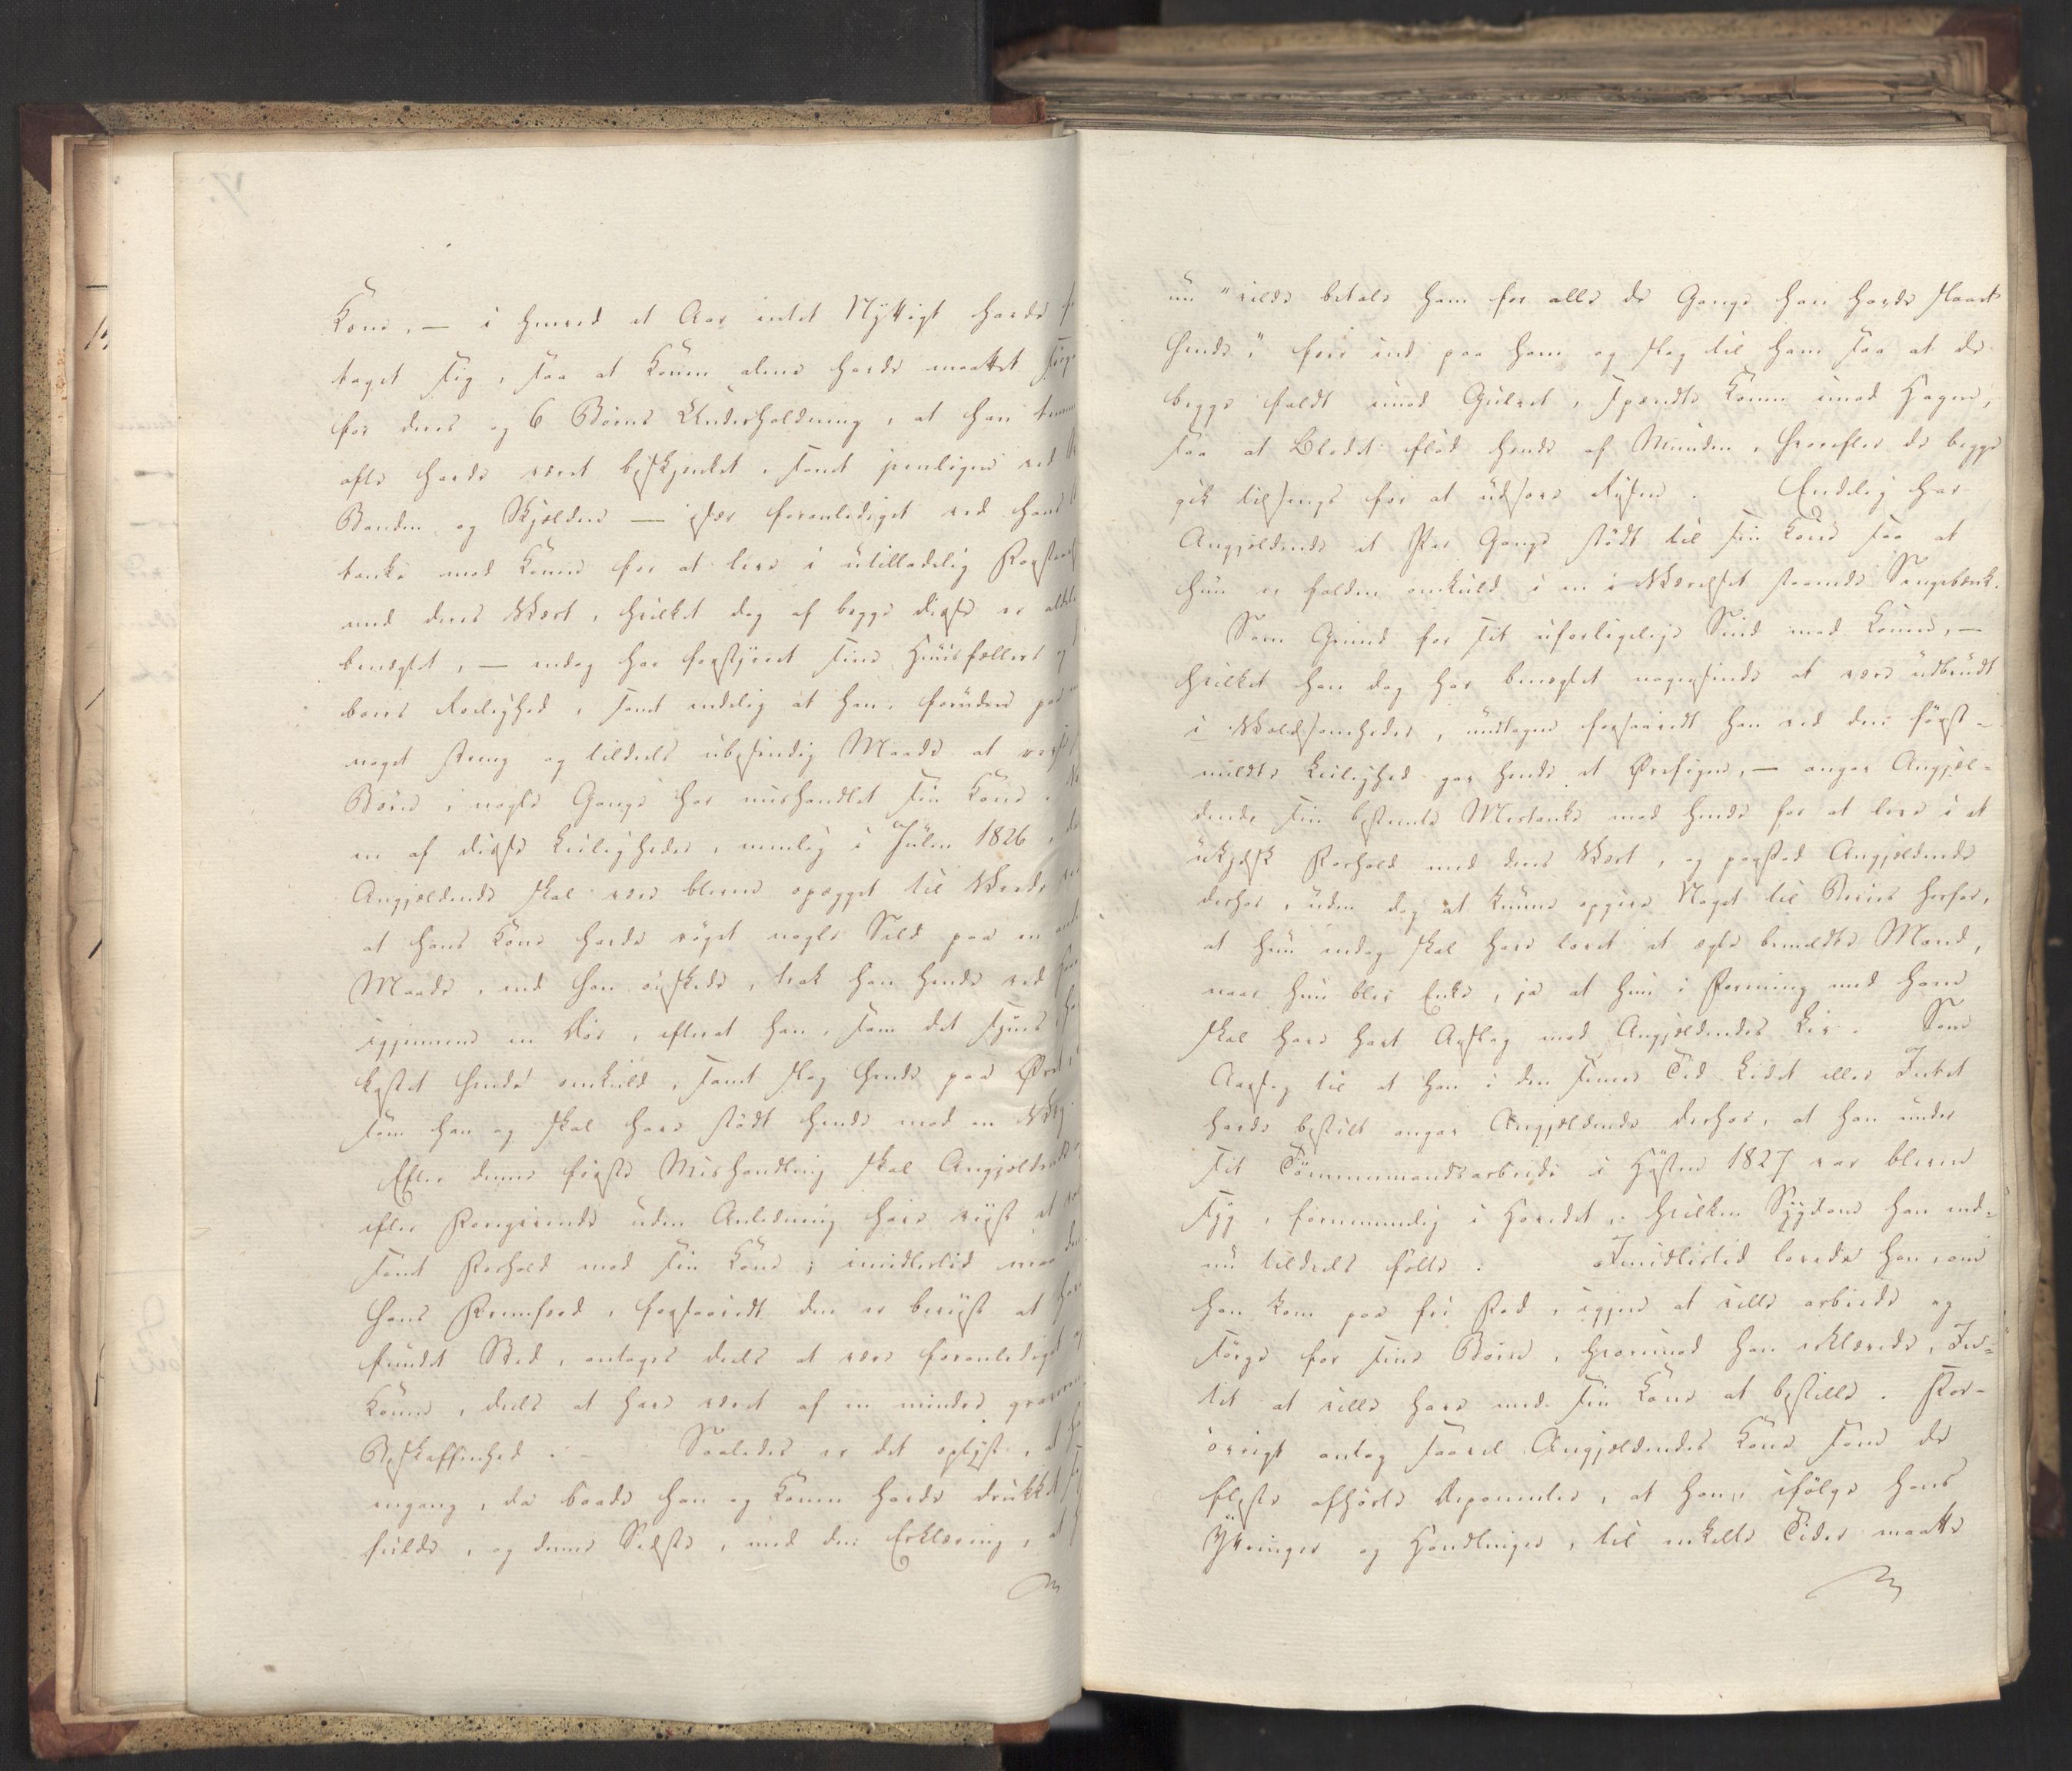 Kone, — i henved et Aar intet Nyttigt havde
taget sig, saa at Konen alene havde maattet sørge
for deres og 6 Børns Underholdning, at han
ofte havde været beskjenket, samt jevnligen ved
Banden og Skjælden — især foranlediget ved hans
tanke mod Konen for at leve i utilladelig Forstaaelse
med deres Vært, hvilket dog af begge disse er aldeles
benægtet, — endog har forstyrret sine Huusfællers og
boers Rolighed, samt endelig at han, foruden paa
noget streng og tildeels ubesindig Maade at
Børn, nogle Gange har mishandlet sin Kone.
en af disse Leiligheder, nemlig i Julen 1826,
Angjældende skal være bleven opægget til Vrede
at hans Kone havde røget nogle Sild paa en anden
Maade, end han ønskede, trak han hende ved
igjennem en Dør, efterat han, som det synes,
kastet hende omkuld, samt slog hende paa Øret,
som han og skal have stødt hende mod en Væg.
Efter denne første Mishandling skal Angjældende
efter Foregivende uden Anledning have viist et
samt Forhold mod sin Kone; imidlertid maa
hans Fremfærd, forsaavidt den er beviist at have
fundet Sted, antages deels at være foranlediget af
Konen, deels at have været af en mindre graverende
Beskaffenhed. – Saaledes er det oplyst, at
engang, da baade han og Konen havde drukket
fulde, og denne Sidste, med den Erklæring, at
nu "vilde betale ham for alle de Gange han havde slaaet
hende," foer ind paa ham og slog til ham saa at de
begge faldt imod Gulvet, spændte Konen imod Hagen,
saa at Blodet flød hende af Munden, hvorefter de begge
gik tilsengs for at udsove Rusen. Endelig har
Angjældende et Par Gange stødt til sin Kone saa at
hun er falden omkuld i en i Værelset staaende Sengebænk.
Som Grund for sit uforligelige Sind mod Konen, —
hvilket han dog har benægtet nogensinde at være udbrudt
i Voldsomheder, undtagen forsaavidt han ved den først-
meldte Leilighed gav hende et Ørefigen, — angav Angjæl-
dende sin bestemte Mistanke mod hende for at leve i et
ukydsk Forhold med deres Vært, og paastod Angjældende
derhos, uden dog at kunne opgive Noget til Beviis herfor,
at hun endog skal have lovet at ægte bemeldte Mand,
naar hun blev Enke, ja at hun i Forening med ham
skal have havt Anslag mod Angjældendes Liv. Som
Aarsag til at han i den senere Tid Lidet eller Intet
havde bestilt angav Angjældende derhos, at han under
sit Tømmermandsarbeide i Høsten 1827 var bleven
syg, fornemmelig i Hovedet, hvilken Sygdom han end-
nu tildeels følte. Imidlertid lovede han, om
han kom paa fri Fod, igjen at ville arbeide og
sørge for sine Børn, hvorimod han erklærede, In-
tet at ville have med sin Kone at bestille. For-
øvrigt antog saavel Angjældendes Kone som de
fleste afhørte Deponenter, at han, ifølge hans
Yttringer og Handlinger, til enkelte Tider maatte